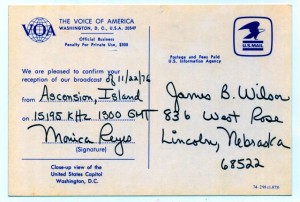 THE VOICE OF AMERICA
VOA
WASHINGTON, D. C., U.S.A. 20547
Official Business
Penalty For Private Use, $300
U.S.MAIL
Postage and Fees Paid
U.S. Information Agency
We are pleased to confirm your
reception of our broadcast of 11/22/76
from Ascension, Island
on 15195 KHz 1300 GMT
Monica Reyes
(Signature)
Close-up view of the
United States Capitol
Washington, D.C.
James B. Wilson
836 West Rose
Lincoln, Nebraska
68522